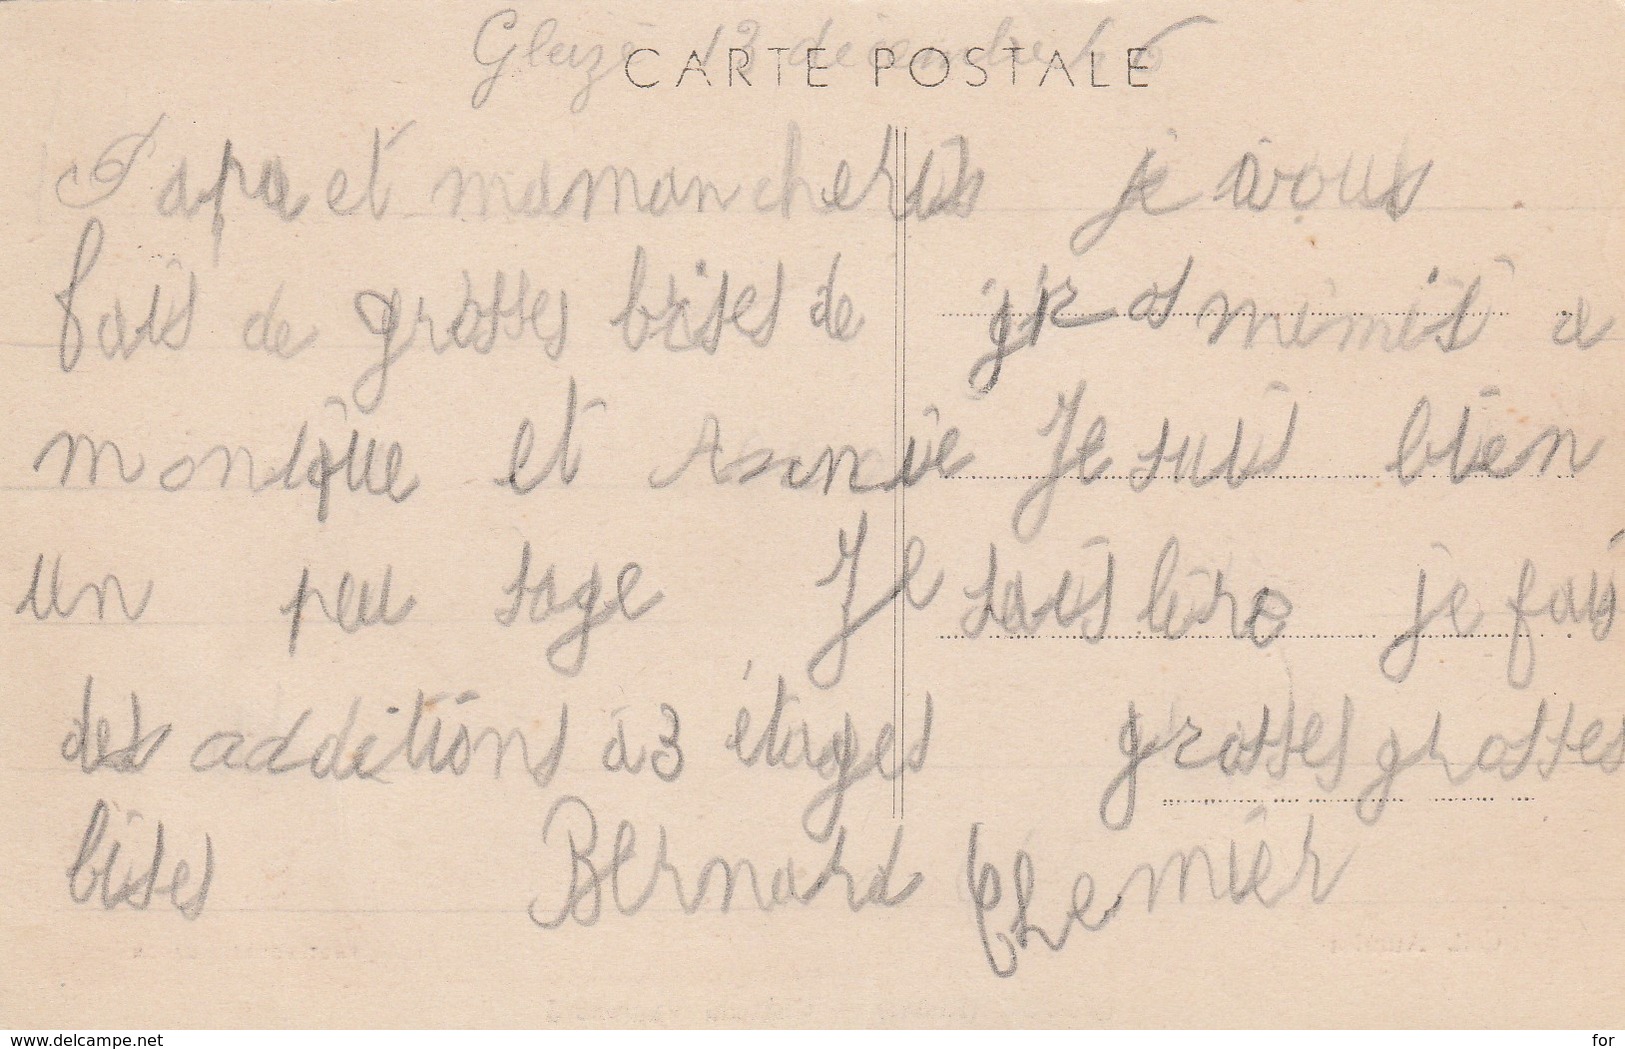 Gleizé 13 décembre 46
CARTE POSTALE
Papa et maman cheris je vous
fais de grosses bises de gros mimis a
monique et Annie Je suis bien
un peu sage Je sais lire je fais
des additions à 3 étages grosses grosses
bises Bernard Chemier
www.delcampe.net
for